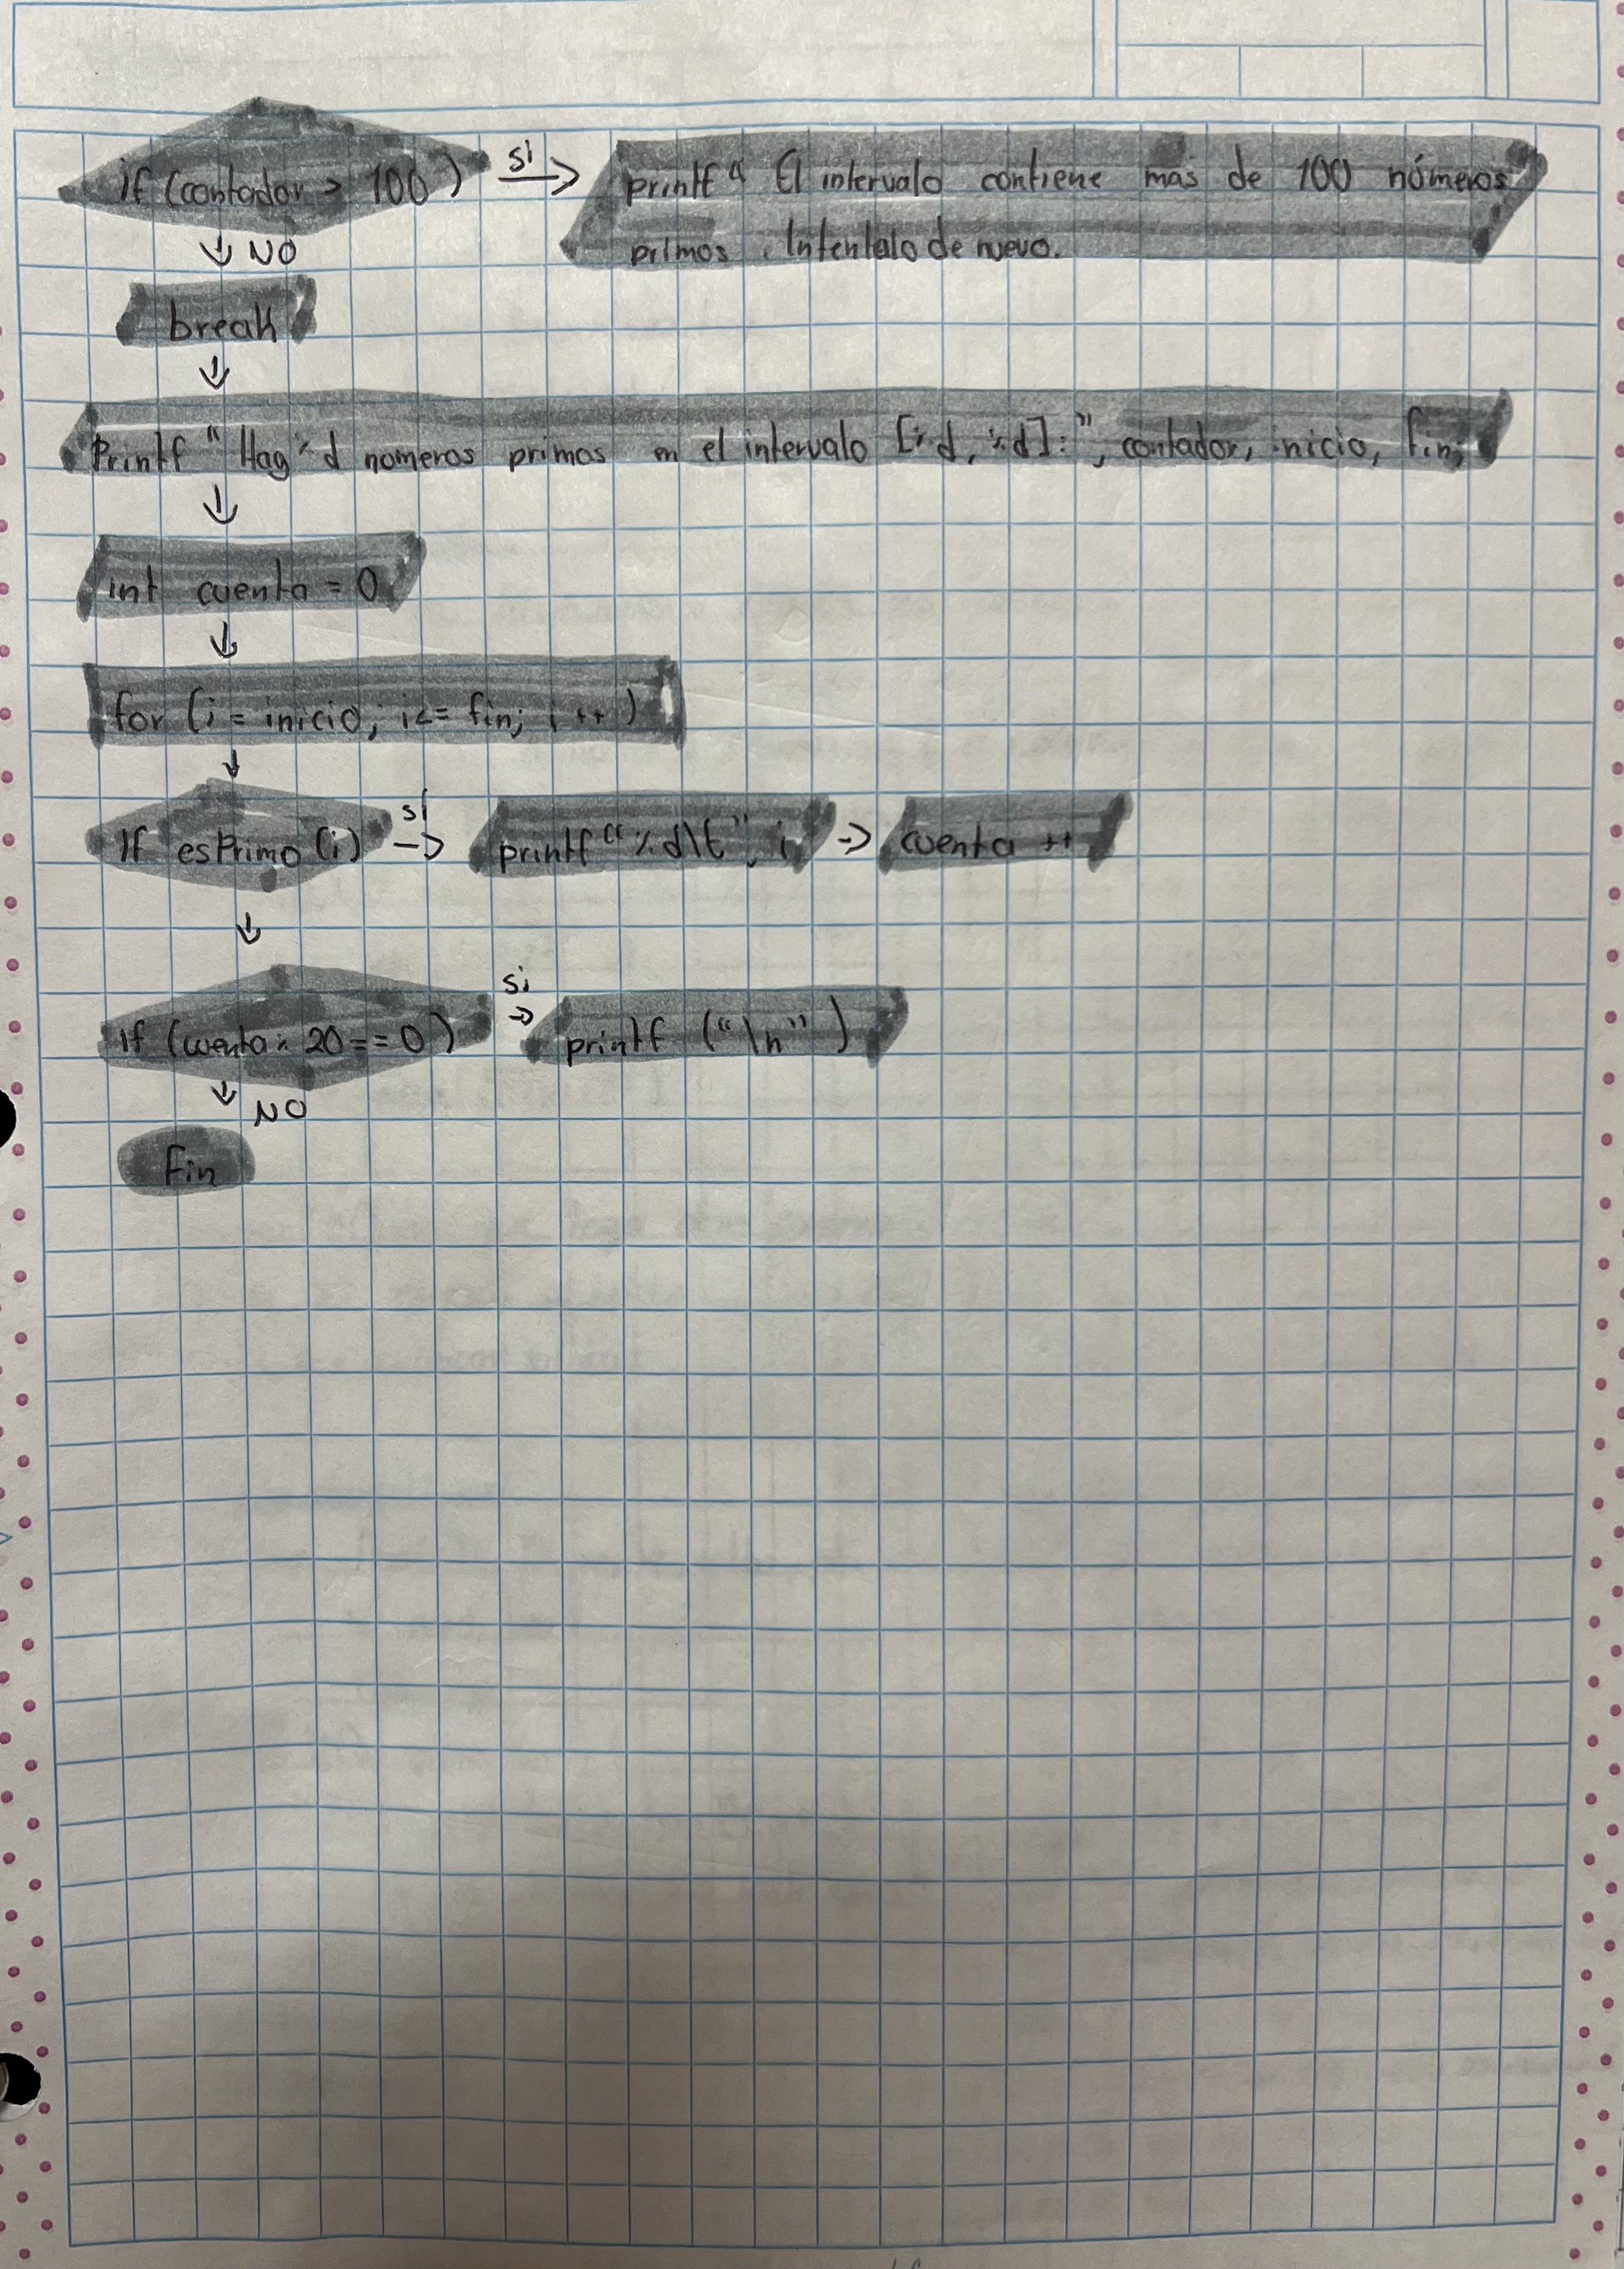 if (contador > 100) si printf “ El intervalo contiene mas de 100 números
primos. Intentalo de nuevo.
NO
break
Printf “ Hay %d numeros primos en el intervalo [%d, %d]:”, contador, inicio, fin;
int cuenta = 0
for (i = inicio; i <= fin; i ++ )
si
If esPrimo (i) printf “ %d\t”, i cuenta ++
si
if (cuenta % 20 == 0) printf (“\n” )
NO
Fin